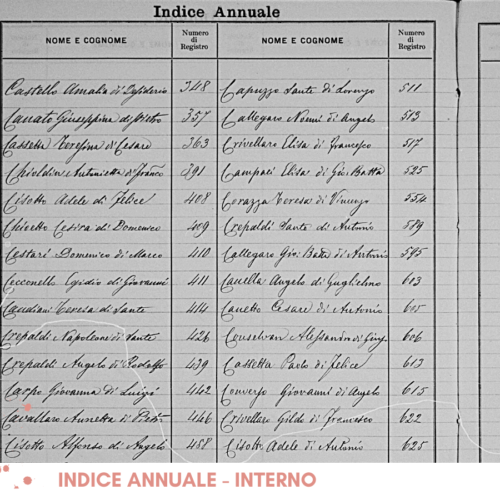 Indice Annuale
NOME E COGNOME Numero di Registro NOME E COGNOME Numero di Registro
Castello Amalia di Desiderio 348 Capuzzo Sante di Lorenzo 511
Canato Giuseppina di Pietro 357 Callegaro Noemi di Angelo 513
Cassetta Teresina di Cesare 363 Crivellaro Elisa di Francesco 517
Antonietta di Franco 391 Campaci Elisa di Gio: Batta 525
Cisotto Adele di Felice 408 Corazza Teresa di Vincenzo 554
Chietto Cesira di Domenico 409 Crepaldi Sante di Antonio 589
Cestari Domenico di Marco 410 Callegaro Gio: Batta di Antonio 595
Cecconello Egidio di Giovanni 411 Canella Angelo di Guglielmo 603
Caudiani Teresa di Sante 414 Canetto Cesare di Antonio 605
Crepaldi Napoleone di Sante 426 Conselvan Alessandro di Giu 606
Crepaldi Angelo di Rodolfo 439 Cassetta Paolo di Felice 613
Caspo Giovanna di Luigi 442 Converso Giovanni di Angelo 615
Cavallaro Annetta di Pietro 446 Crivellaro Gildo di Francesco 622
Cisotto Alfonso di Angelo 458 Cisotto Adele di Antonio 625
INDICE ANNUALE - INTERNO